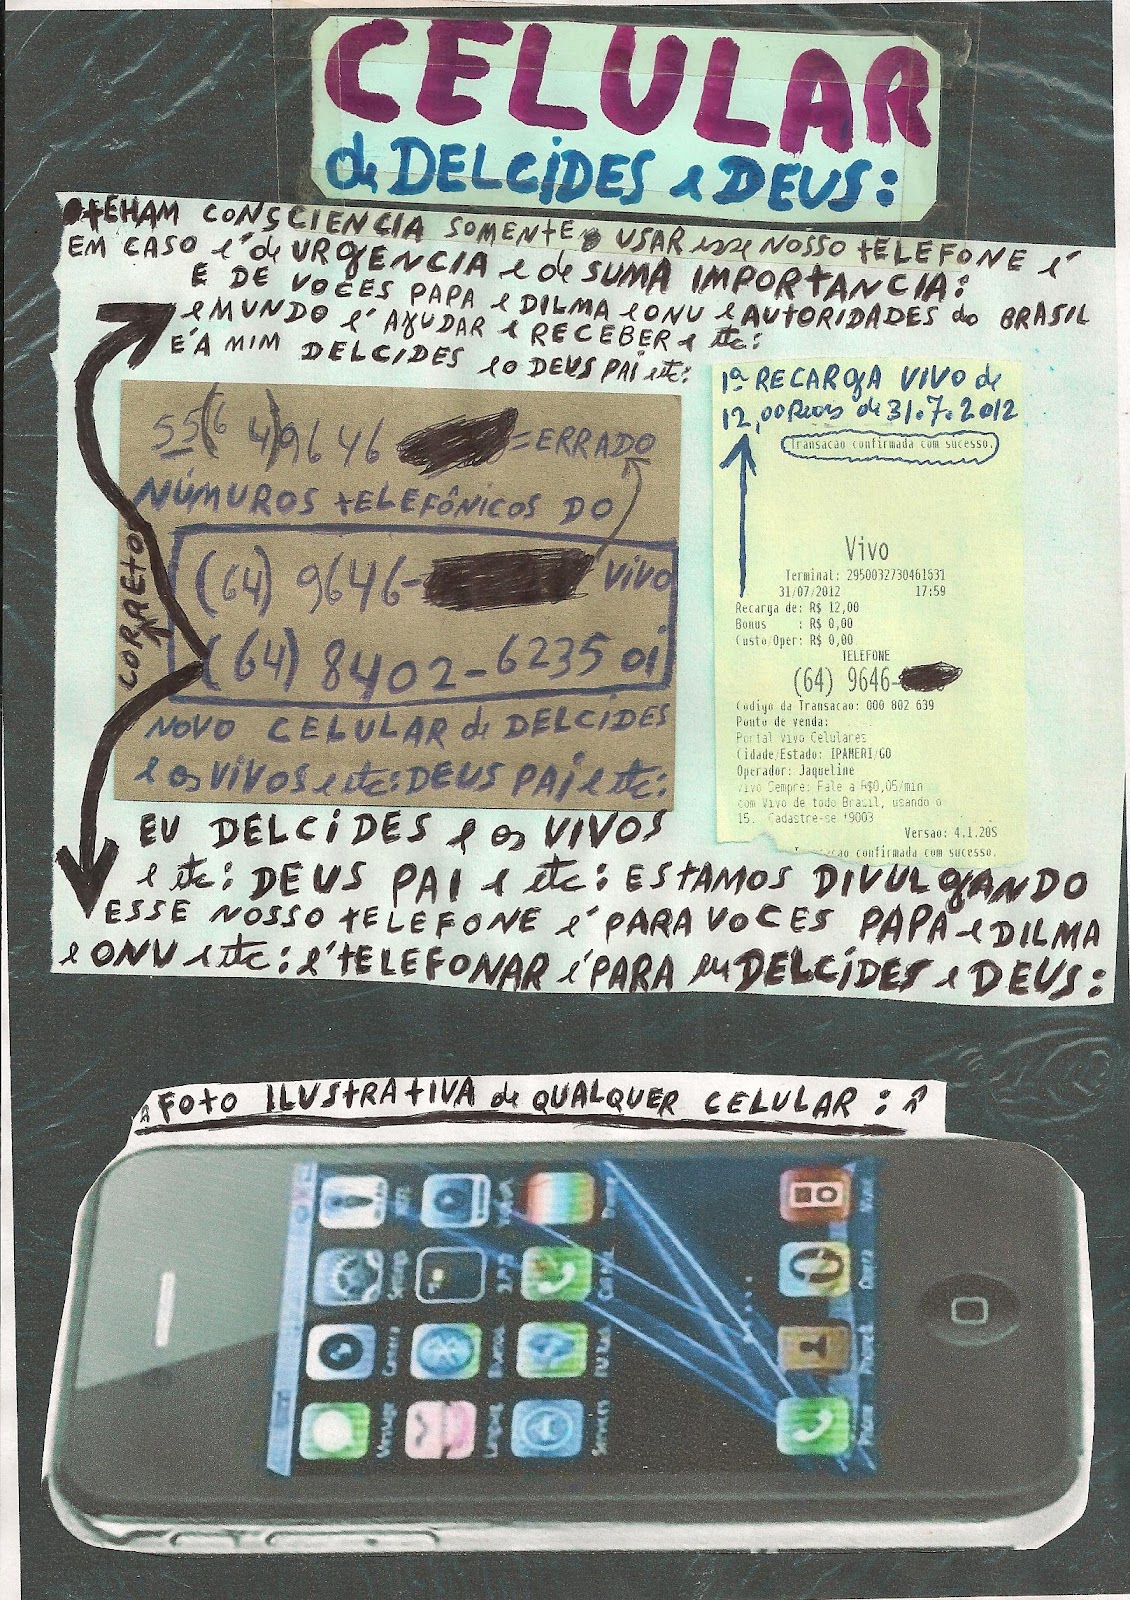 CELULAR
de DELCIDES e DEUS:
TEHAM CONSCIENCIA SOMENTE USAR esse NOSSO tELEFONE é
EM CASO é de URgENCIA e de SUMA IMPORTANCIA:
E DE VOCES PAPA e DILMA e ONU e AUTORIDADES do BRASIL
e MUNDO é AyUDAR e RECEBER e etc:
E'A MIM DELCIDES e o DEUS PAI etc:
55(64)9646 =ERRADO
NÚMUROS tELEFÔNICOS DO
(64) 9646- VIVO
(64) 8402-6235 oi
CORREtO
NOVO CELULAR de DELCIDES
e os VIVOS e etc: DEUS PAI e etc:
1ª RECARgA VIVO de
12,00 Reais de 31.7.2012
Transacao confirmada com sucesso.
Vivo
Terminal: 2950032730461631
31/07/2012 17:59
Recarga de: R$ 12,00
Bonus : R$ 0,00
Custo/Oper: R$ 0,00
TELEFONE
(64) 9646-
Codigo da Transacao: 000 802 639
Ponto de venda:
Portal Vivo Celulares
Cidade/Estado: IPAMERI/GO
Operador: Jaqueline
Vivo Sempre: Fale a R$0,05/min
com Vivo de todo Brasil, usando o
15. Cadastre-se *9003
Versao: 4.1.20S
Transacao confirmada com sucesso.
EU DELCIDES e os VIVOS
e etc: DEUS PAI e etc: EStAMOS DIVULgANDO
ESSE NOSSO tELEFONE é PARA VOCES PAPA e DILMA
e ONU e etc: é tELEFONAR é PARA eu DELCIDES e DEUS:
FOtO ILUStRAtIVA de QUALQUER CELULAR:
Settings
Camera
Message
Services